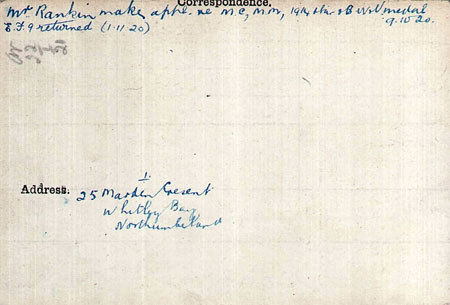 Correspondence.
Mr Rankin makes apln. re M.C., M.M, 1914 Star & B W & V medal
9.10.20.
E.F.9 returned (1.11.20)
1.
Address. 25 Crescent
Whitley Bay
Northumberland